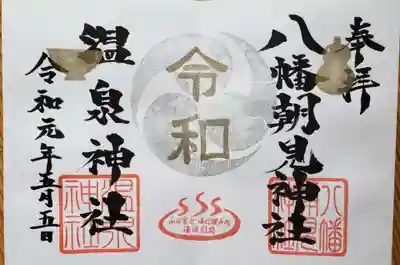 奉拝
八幡朝見神社
令和
温泉神社
令和元年五月五日
八幡朝見神社
温泉神社